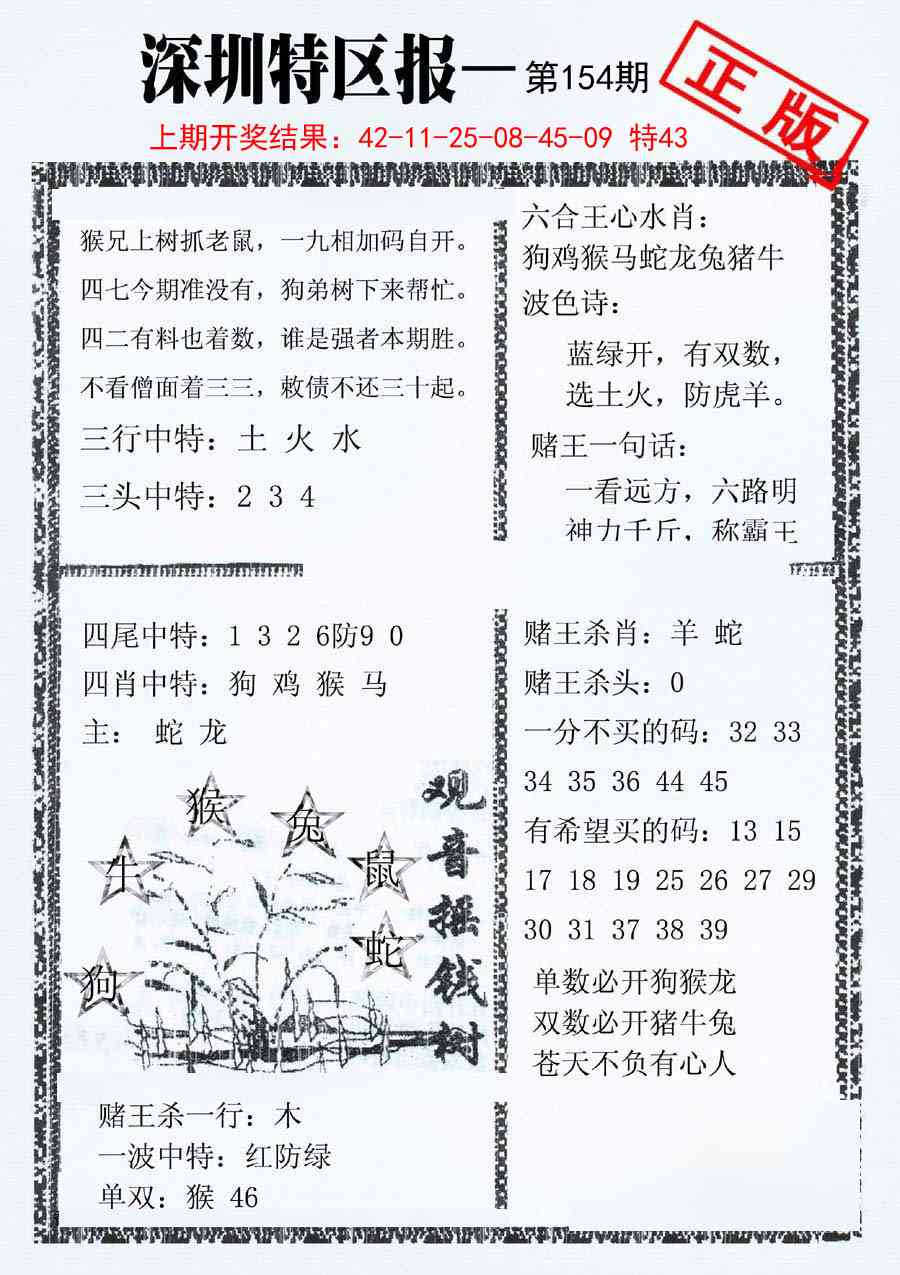 深圳特区报—第154期
正版
上期开奖结果：42-11-25-08-45-09 特43
猴兄上树抓老鼠，一九相加码自开。
四七今期准没有，狗弟树下来帮忙。
四二有料也着数，谁是强者本期胜。
不看僧面着三三，敕债不还三十起。
三行中特：土 火 水
三头中特：2 3 4
六合王心水肖：
狗鸡猴马蛇龙兔猪牛
波色诗：
蓝绿开，有双数，
选土火，防虎羊。
赌王一句话：
一看远方，六路明
神力千斤，称霸王
四尾中特：1 3 2 6防9 0
四肖中特：狗 鸡 猴 马
主： 蛇 龙
猴
兔
牛
鼠
蛇
狗
观音摇钱树
赌王杀肖：羊 蛇
赌王杀头：0
一分不买的码：32 33
34 35 36 44 45
有希望买的码：13 15
17 18 19 25 26 27 29
30 31 37 38 39
单数必开狗猴龙
双数必开猪牛兔
苍天不负有心人
赌王杀一行：木
一波中特：红防绿
单双：猴 46